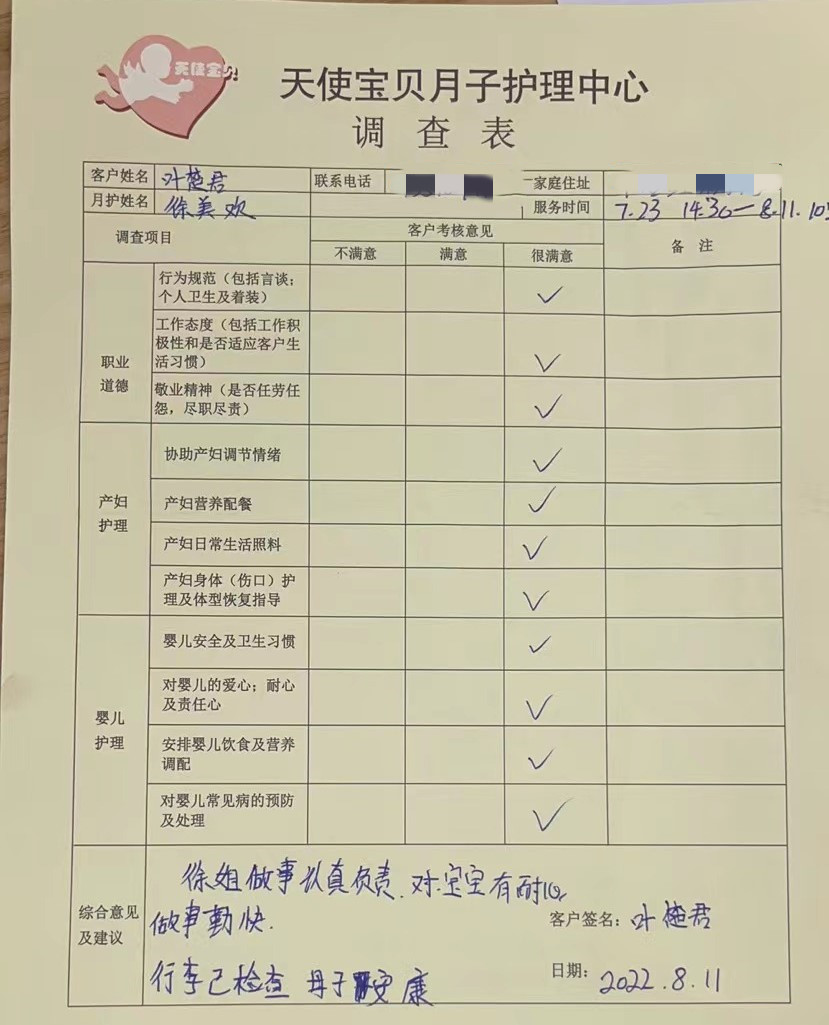 天使宝贝
天使宝贝月子护理中心
调 查 表
客户姓名 叶楚君 联系电话 家庭住址
月护姓名 徐美欢 服务时间 7.23 14:30—8.11.10
调查项目 客户考核意见 备 注
不满意 满意 很满意
职业
道德
行为规范（包括言谈;
个人卫生及着装） ✓
工作态度（包括工作积
极性和是否适应客户生
活习惯） ✓
敬业精神（是否任劳任
怨，尽职尽责） ✓
产妇
护理
协助产妇调节情绪 ✓
产妇营养配餐 ✓
产妇日常生活照料 ✓
产妇身体（伤口）护
理及体型恢复指导 ✓
婴儿
护理
婴儿安全及卫生习惯 ✓
对婴儿的爱心；耐心
及责任心 ✓
安排婴儿饮食及营养
调配 ✓
对婴儿常见病的预防
及处理 ✓
综合意见
及建议
徐姐做事认真负责.对宝宝有耐心
做事勤快.
行李已检查 母子安康
客户签名：叶楚君
日期：2022.8.11